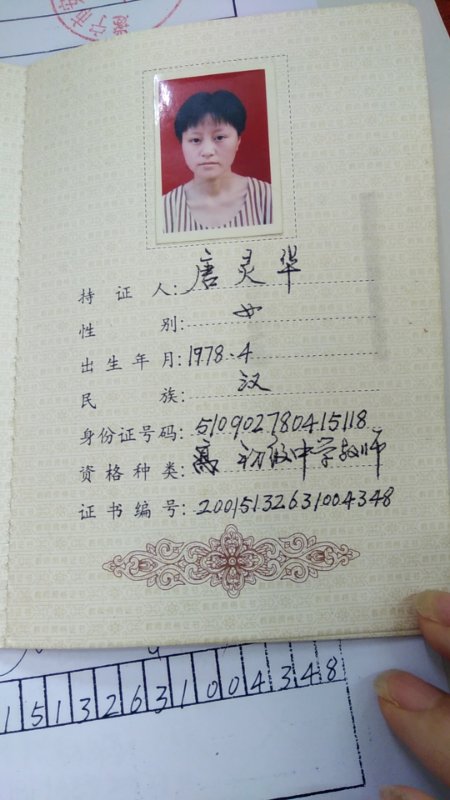 持证人：唐灵华
性别：女
出生年月：1978.4
民族：汉
身份证号码：510902780415118
资格种类：高 初级中学教师
证书编号：20015132631004348
15132631004348